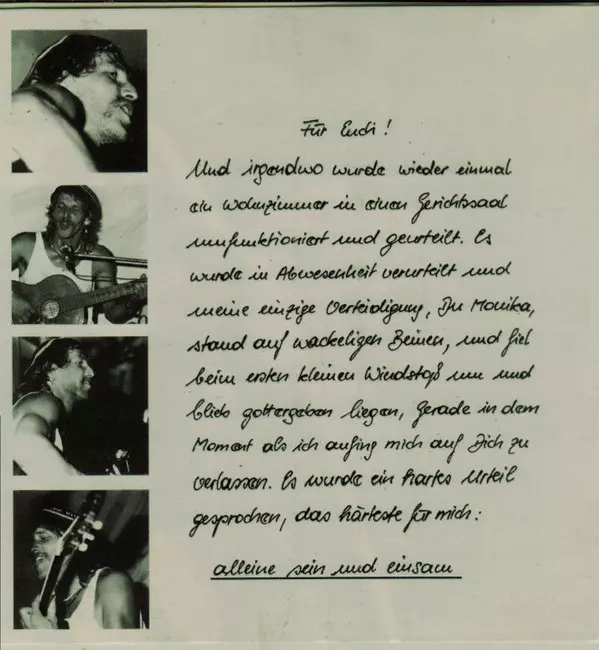 Für Euch!
Und irgendwo wurde wieder einmal
ein Wohnzimmer in einen Gerichtssaal
umfunktioniert und geurteilt. Es
wurde in Abwesenheit verurteilt und
meine einzige Verteidigung, Du Monika,
stand auf wackeligen Beinen, und fiel
beim ersten kleinen Windstoß um und
blieb gottergeben liegen, Gerade in dem
Moment als ich anfing mich auf Dich zu
verlassen. Es wurde ein hartes Urteil
gesprochen, das härteste für mich:
alleine sein und einsam